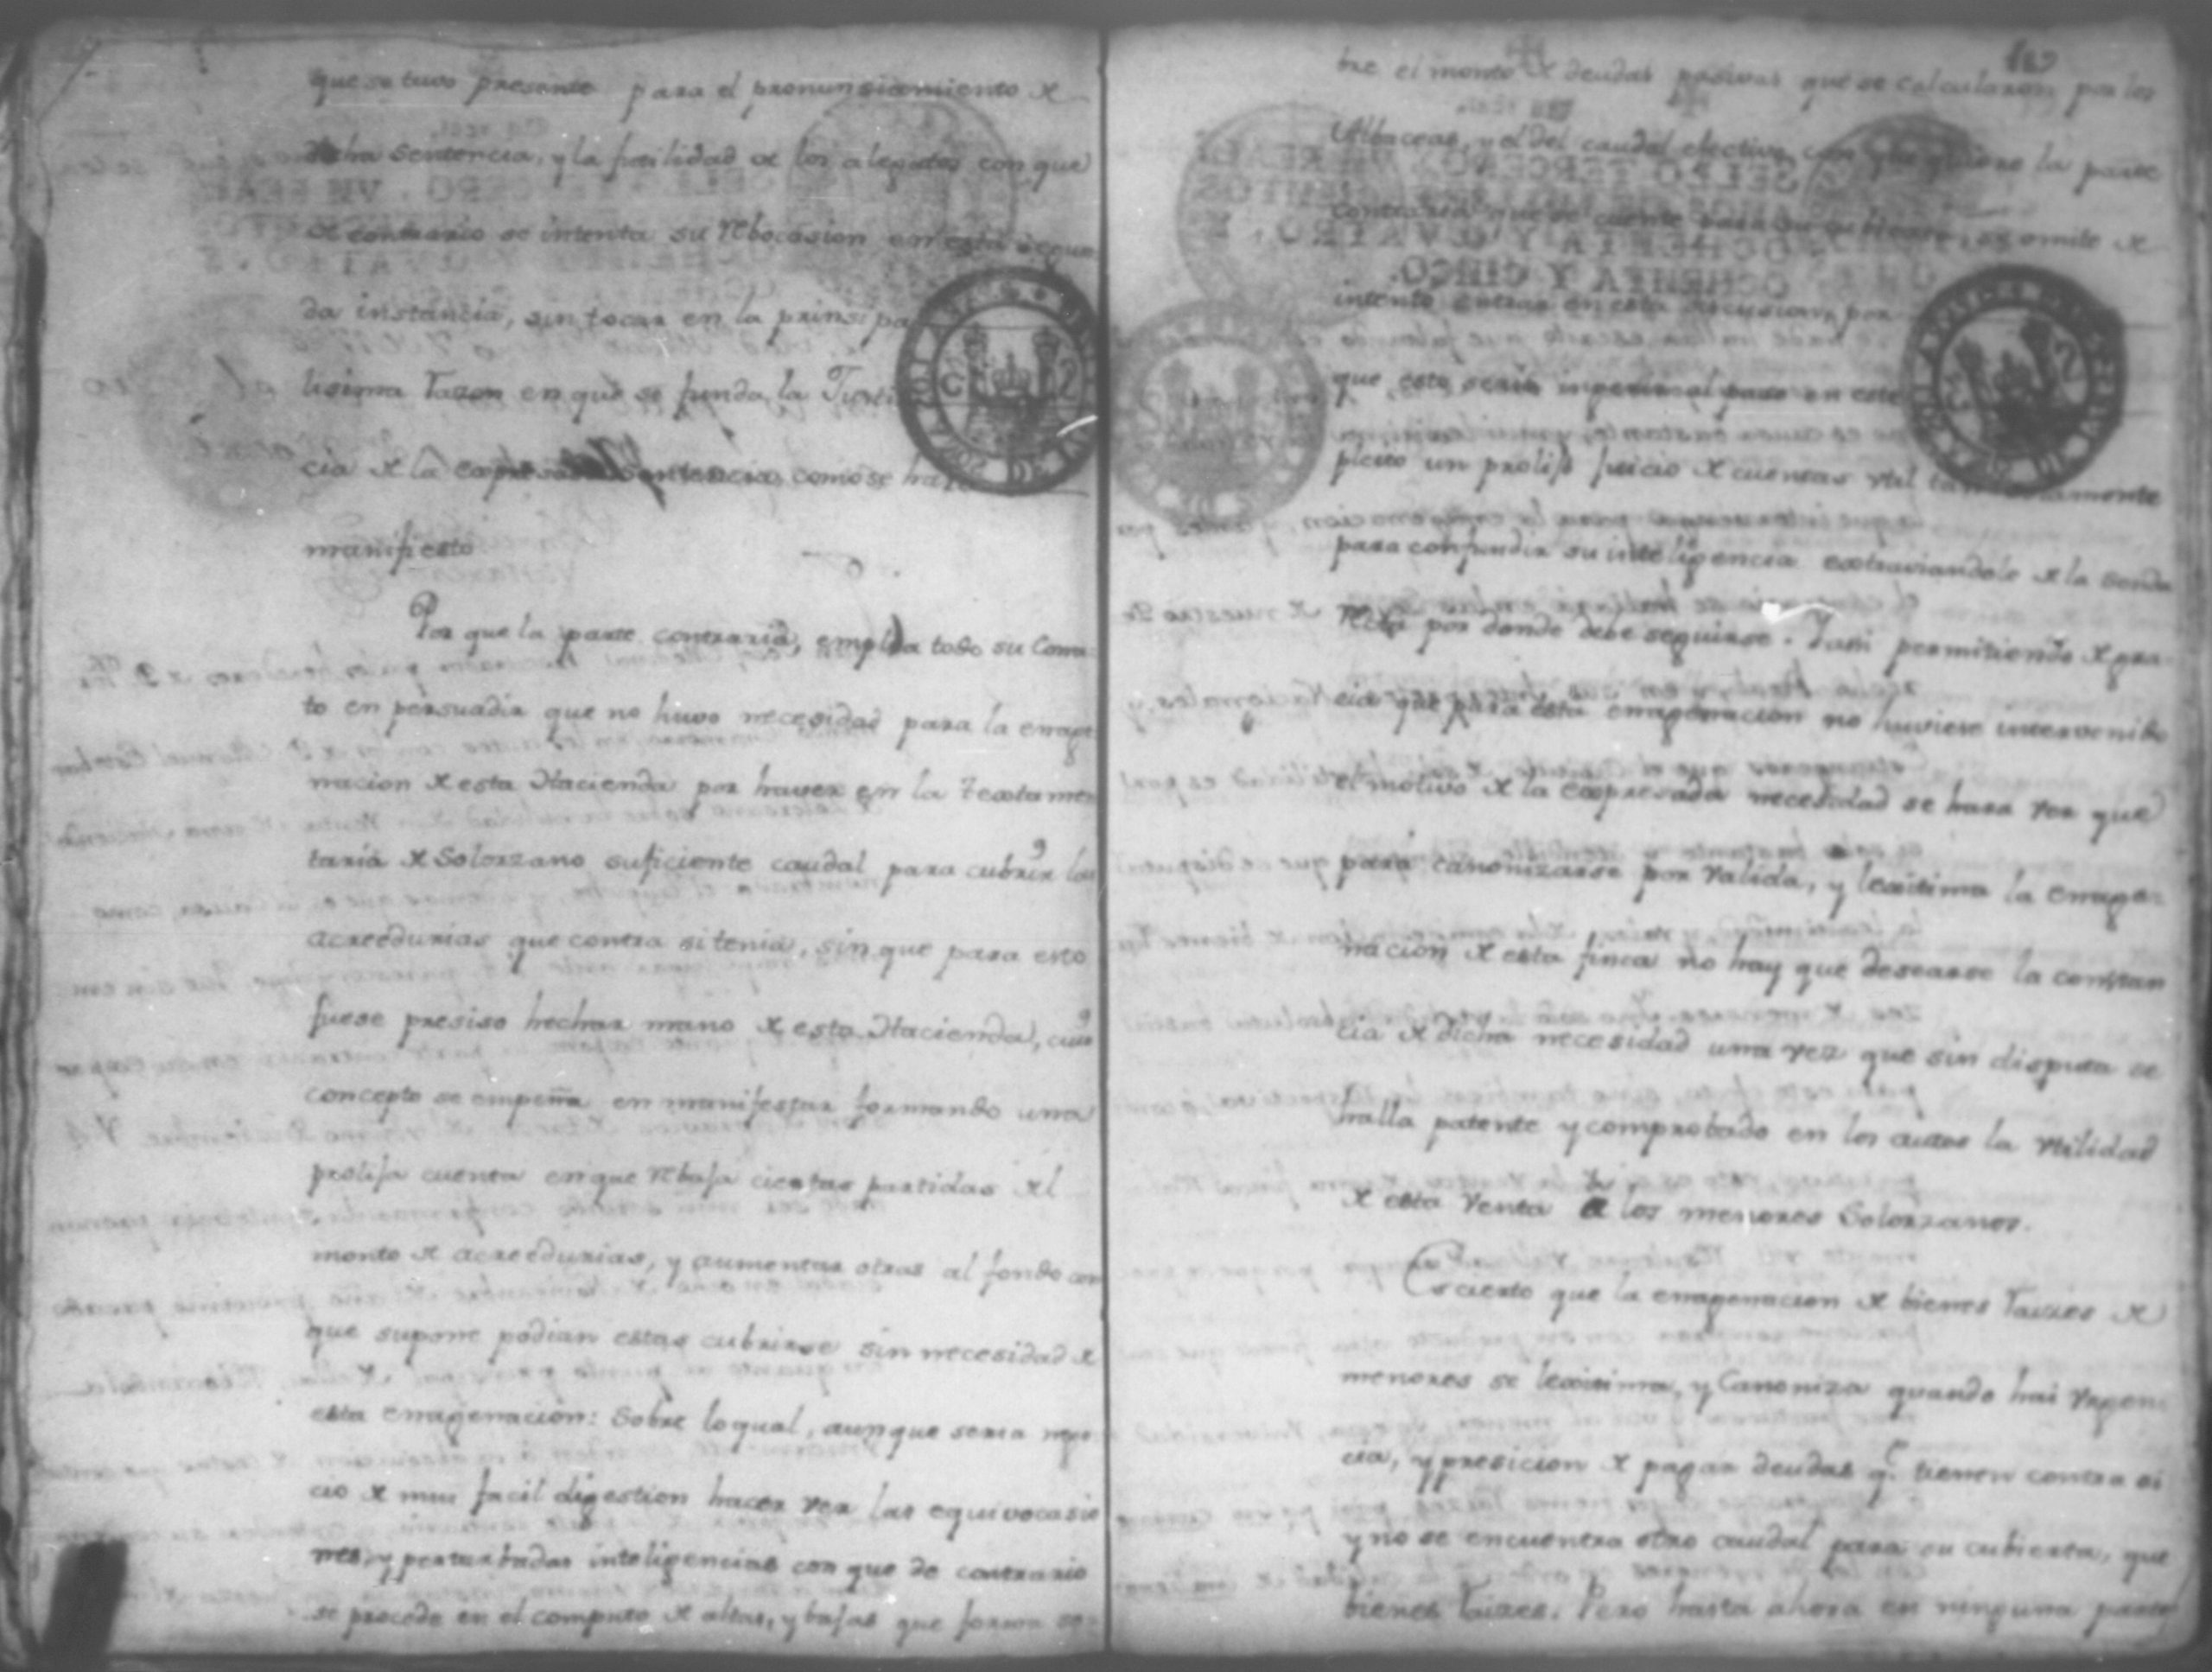 que se tuvo presente para el pronunsiamiento de
dicha Sentencia, y la futilidad de los alegatos con que
de contrario se intenta su Rebocasion en esta segun
da instancia, sin tocar en la prinsipa
lisima Razon en que se funda la Justi
cia de la expresada Sentencia, como se hara
manifiesto
Por que la parte contraria, emplea todo su Cona:
to en persuadir que no huvo necesidad para la enage
nacion de esta Hacienda por haver en la Textamen
taria de Solorzano suficiente caudal para cubrir las
acreedurias que contra si tenia, sin que para esto
fuese presiso hechar mano de esta Hacienda, cuio
concepto se empeña en manifestar formando una
prolifa cuenta en que Rebaja ciertas partidas del
monto de acreedurias, y aumentar otras al fondo con
que supone podian estas cubrirse sin necesidad de
esta enagenacion: Sobre lo qual, aunque seria nego
cio de mui facil digestion hacer ver las equivocasio
nes, y perturbadas inteligencias con que de contrario
se procede en el computo de altas, y bajas que forma so=
bre el monto de deudas pasivas que se calcularon por los
Albaceas, y el del caudal efectivo con que quiere la parte
contraria que se cuente para su cubierta, se omite de
intento entrar en esta discusion, por
que esto seria ingerir al paso en este
pleito un prolijo juicio de cuentas util tan solamente
para confundir su inteligencia extraviandole de la senda
Recta por donde debe seguirse. Y asi permitiendo de gra
cia que para esta enagenacion no huviese intervenido
el motivo de la expresada necesidad se hara ver que
para canonizarse por valida, y lexitima la enage=
nacion de esta finca no hay que desearse la constan
cia de dicha necesidad una vez que sin disputa se
halla patente y comprobado en los autos la utilidad
de esta venta a los menores Solorzanos.
Es cierto que la enagenacion de bienes Raizes de
menores se lexitima, y Canoniza quando hai Urgen
cia, y presicion de pagar deudas q.e tienen contra si
y no se encuentra otro caudal para su cubierta, que
bienes Raizes. Pero hasta ahora en ninguna parte